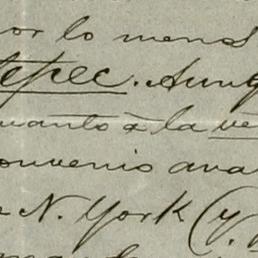 por lo menos
tepec. Aunq
cuanto à la ve
convenio ana
N. York (y.